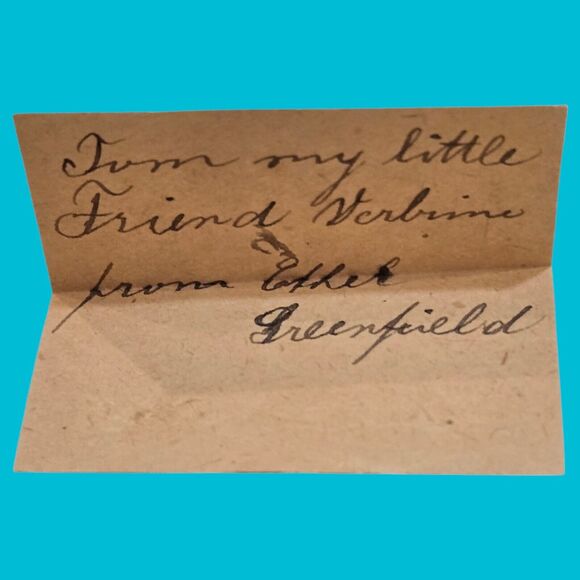 Tom my little
Friend Verbrine
from Ethel
Greenfield